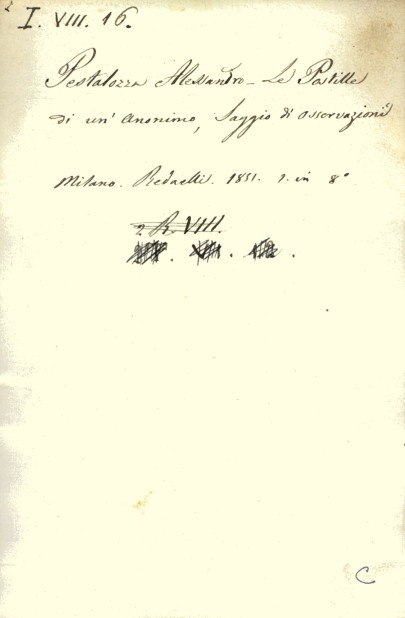 I. VIII. 16.
Pestalozza Alessandro - Le Postille
di un' anonimo, Saggio di osservazioni
Milano. Redaelli. 1851. 1. in 8°
2 R VIII.
C